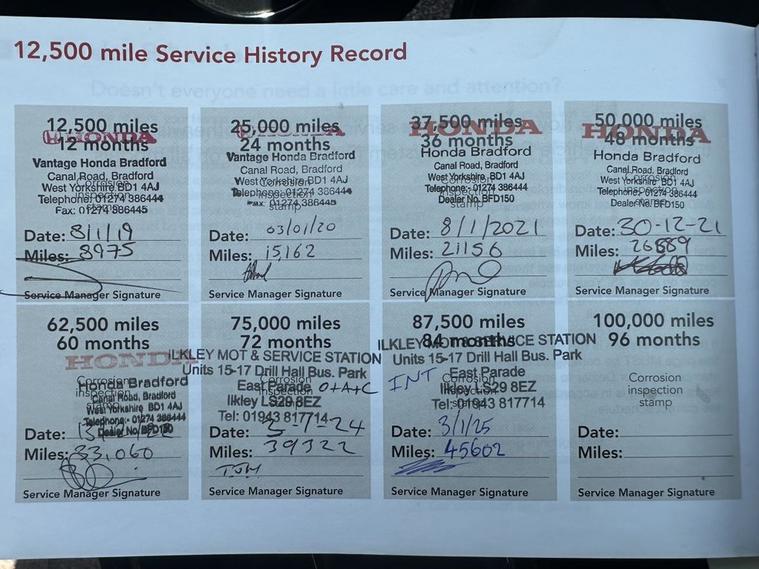 12,500 mile Service History Record
12,500 miles
HONDA
12 months
Vantage Honda Bradford
Canal Road, Bradford
West Yorkshire BD1 4AJ
Telephone: 01274 386444
Fax: 01274 386445
Date: 8/1/19
Miles: 8975
Service Manager Signature
25,000 miles
24 months
Vantage Honda Bradford
Canal Road, Bradford
West Yorkshire BD1 4AJ
Telephone: 01274 386444
Fax: 01274 386445
Corrosion
inspection
stamp
Date: 03/01/20
Miles: 15,162
Service Manager Signature
37,500 miles
HONDA
36 months
Honda Bradford
Canal Road, Bradford
West Yorkshire BD1 4AJ
Telephone:- 01274 386444
Dealer No. BFD150
stamp
Date: 8/1/2021
Miles: 21156
Service Manager Signature
50,000 miles
HONDA
48 months
Honda Bradford
Canal Road, Bradford
West Yorkshire BD1 4AJ
Telephone:- 01274 386444
Dealer No. BFD150
Date: 30-12-21
Miles: 26889
Service Manager Signature
62,500 miles
60 months
HONDA
Honda Bradford
Canal Road, Bradford
West Yorkshire BD1 4AJ
Telephone:- 01274 386444
Dealer No. BFD150
Date:
Miles: 33,060
Service Manager Signature
75,000 miles
72 months
ILKLEY MOT & SERVICE STATION
Units 15-17 Drill Hall Bus. Park
East Parade
O+A+C
Ilkley LS29 8EZ
Tel: 01943 817714
Date:
Miles: 39322
Service Manager Signature
87,500 miles
84 months
ILKLEY MOT & SERVICE STATION
Units 15-17 Drill Hall Bus. Park
INT
East Parade
Ilkley LS29 8EZ
Tel: 01943 817714
Date: 3/1/25
Miles: 45602
Service Manager Signature
100,000 miles
96 months
Corrosion
inspection
stamp
Date:
Miles:
Service Manager Signature